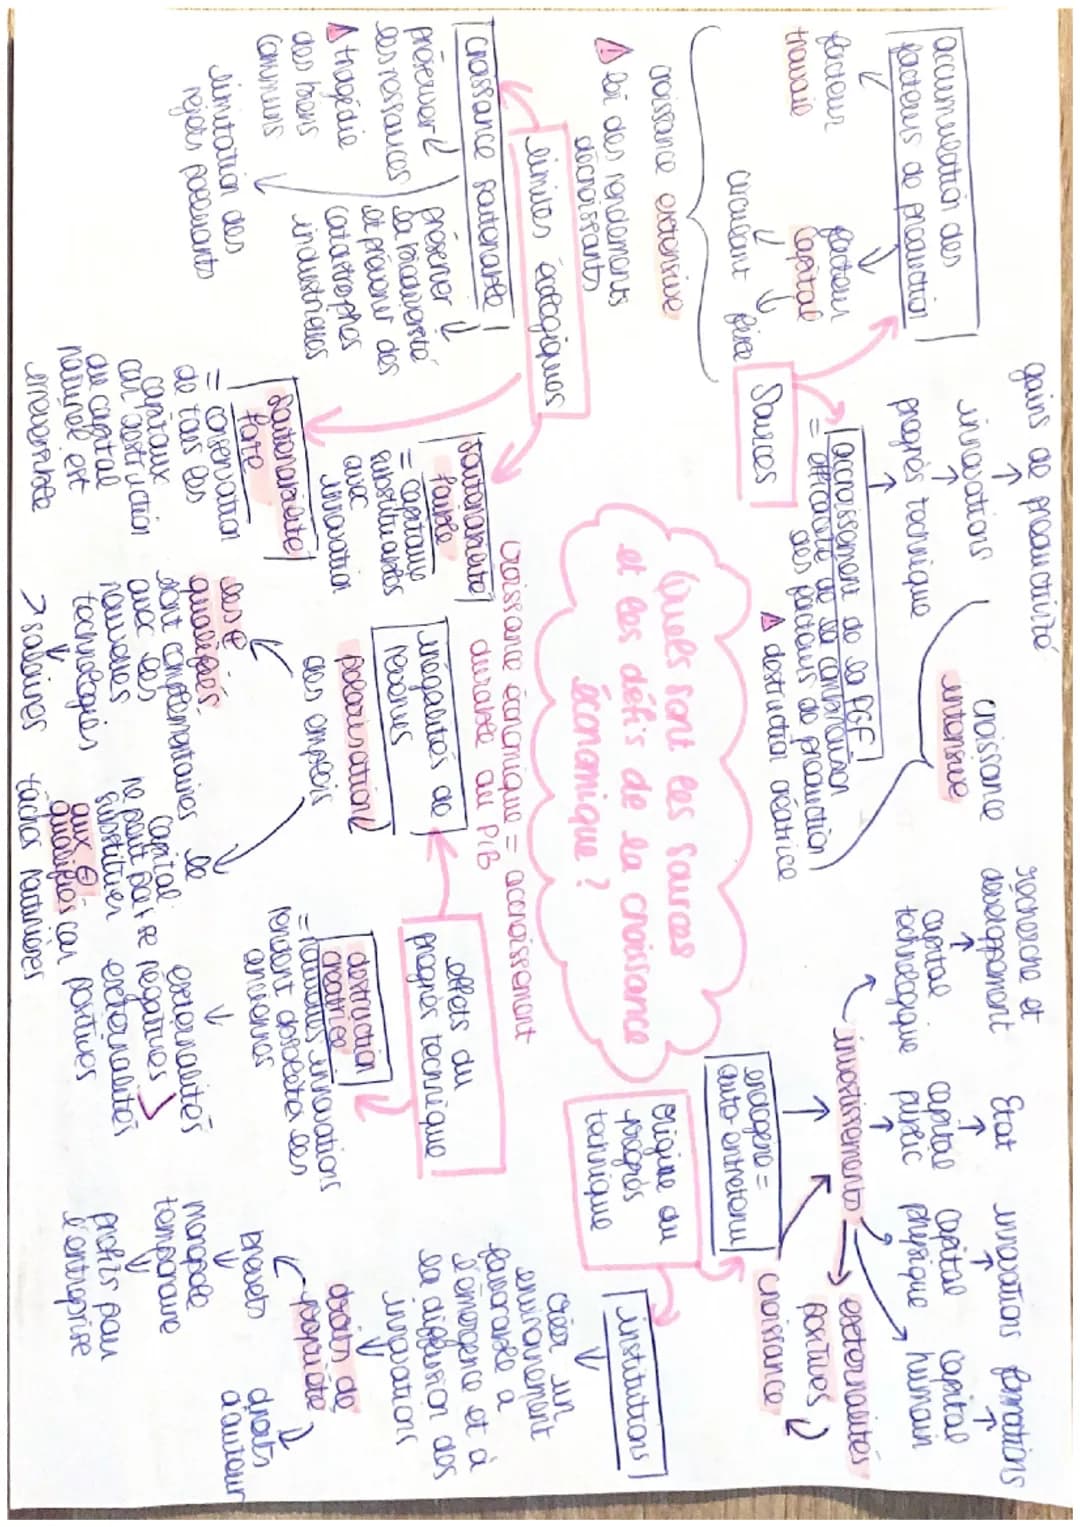 Quels sont les sources
et les défis de la croissance
économique ?
Croissance économique = accroissement
durable du PIB
Sources
accumulation des
facteurs de production
facteur
travail
facteur
capital
circulant
fixe
croissance extensive
loi des rendements
décroissants
accroissement de la PGF
= efficacité de la combinaison
des facteurs de production
destruction créatrice
progrès technique
innovations
gains de productivité
croissance
intensive
Origine du
progrès
technique
endogène =
auto-entretenu
investissements
capital
technologique
recherche et
développement
capital
public
Etat
capital
physique
innovations
capital
humain
formations
externalités
positives
croissance
institutions
créer un
environnement
favorable à
l'émergence et à
la diffusion des
innovations
droits de
propriété
brevets
monopole
temporaire
profits pour
l'entreprise
droits
d'auteur
effets du
progrès technique
destruction
créatrice
= nouvelles innovations
rendent obsolètes les
anciennes
externalités
négatives
externalités
positives
inégalités de
revenus
polarisation
des emplois
les ⊕
qualifiés
sont complémentaires
avec les
nouvelles
technologies
> salaires
le
capital
ne peut pas se
substituer
aux ⊖
qualifiés car
tâches routinières
limites écologiques
croissance soutenable
préserver
les ressources
tragédie
des biens
communs
préserver
la biodiversité
et prévenir des
catastrophes
industrielles
limitation des
rejets polluants
soutenabilité
faible
= capitaux
substituables
aux
innovation
soutenabilité
forte
= conservation
de tous les
capitaux
car destruction
du capital
naturel est
irréversible